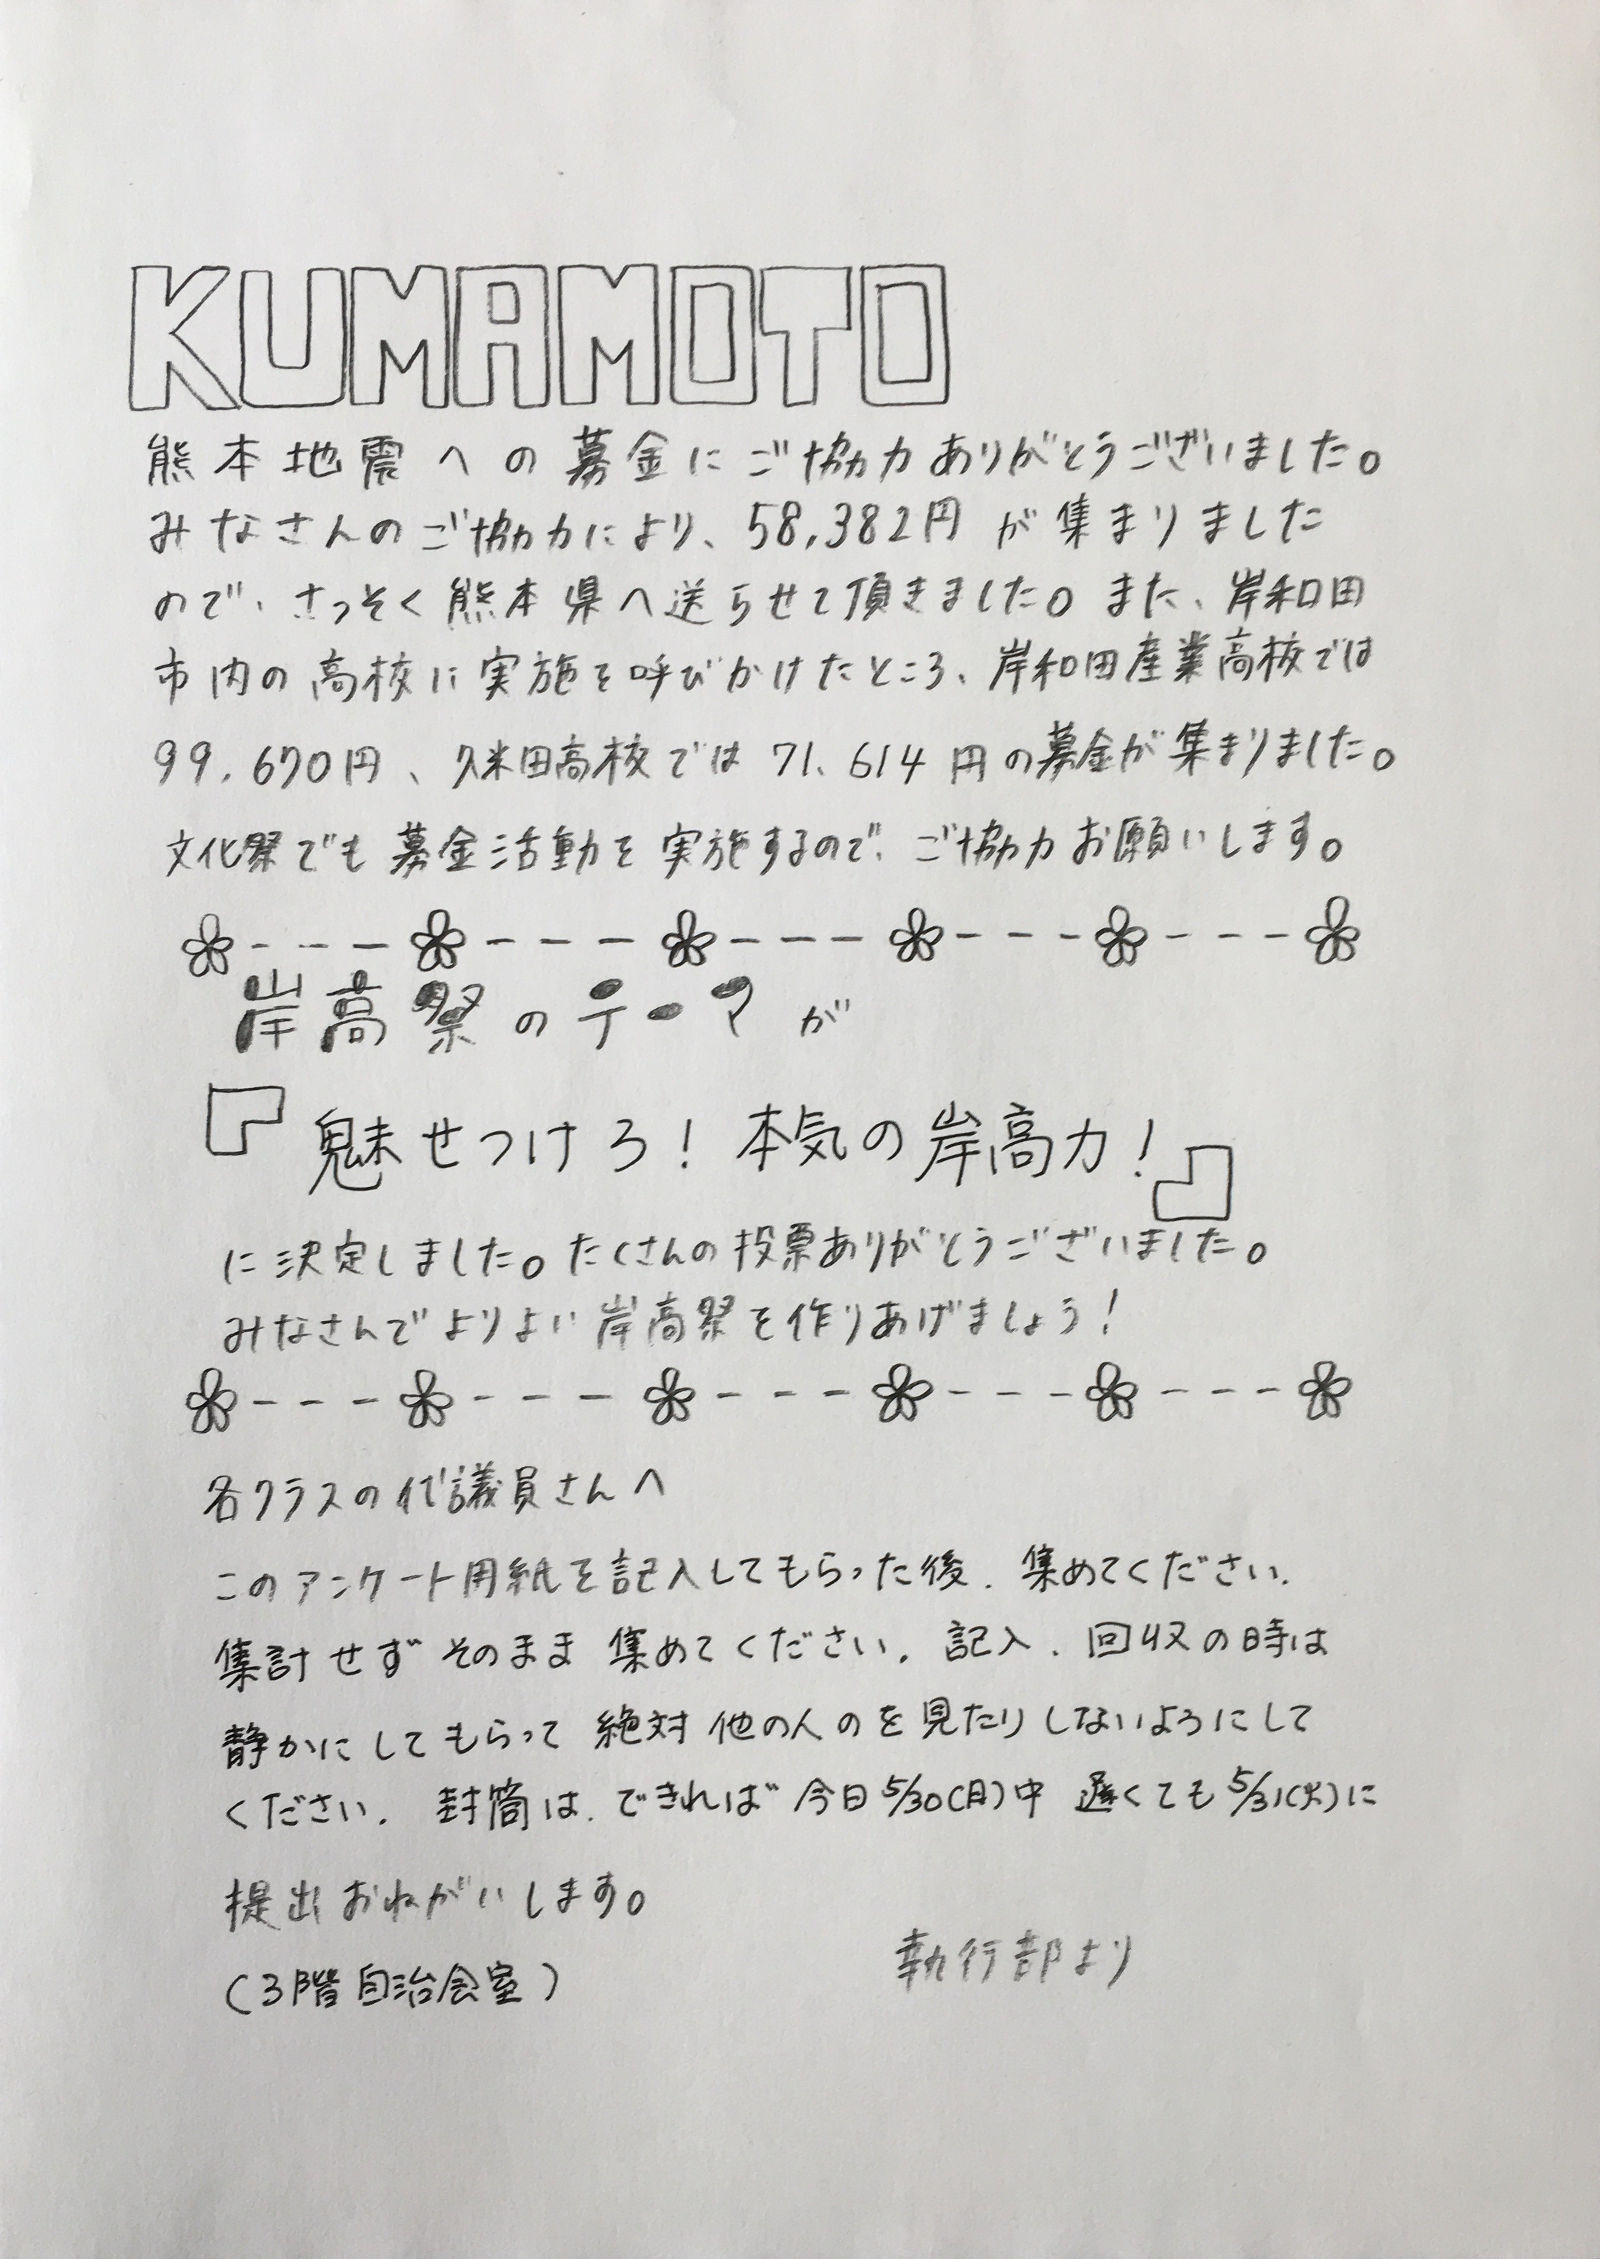 KUMAMOTO
熊本地震への募金にご協力ありがとうございました。
みなさんのご協力により、58,382円が集まりました
ので、さっそく熊本県へ送らせて頂きました。また、岸和田
市内の高校に実施を呼びかけたところ、岸和田産業高校では
99,670円、久米田高校では71,614円の募金が集まりました。
文化祭でも募金活動を実施するので、ご協力お願いします。
岸高祭のテーマが
『魅せつけろ!本気の岸高力!』
に決定しました。たくさんの投票ありがとうございました。
みなさんでよりよい岸高祭を作りあげましょう!
各クラスの代議員さんへ
このアンケート用紙を記入してもらった後、集めてください。
集計せずそのまま集めてください。記入、回収の時は
静かにしてもらって絶対他の人のを見たりしないようにして
ください。封筒は、できれば今日5/30(月)中 遅くても5/31(火)に
提出おねがいします。
(3階自治会室)
執行部より